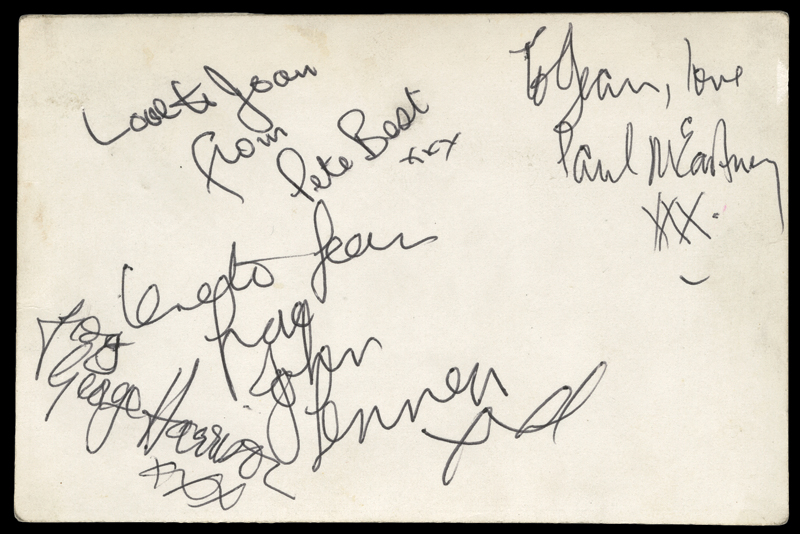 Love to Joan
from
Pete Best
xxx
To Jean, love
Paul McCartney
XXX.
Love to Jean
from
John
Lennon
George Harrison
xxx